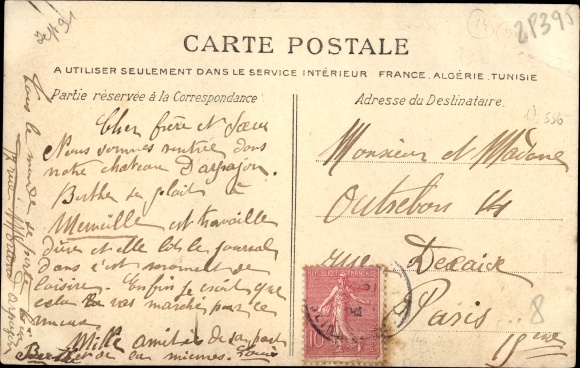 CARTE POSTALE
A UTILISER SEULEMENT DANS LE SERVICE INTÉRIEUR FRANCE. ALGÉRIE. TUNISIE
Partie réservée à la Correspondance
Adresse du Destinataire.
Cher frère et Sœur
Nous sommes rentrée dans
notre chateau D'arpajon.
Berthe se plait à
Merveille et travaille
dure et elle lit le journal
dans c'est moment de
loisirs. Enfin je crois que
cela va marché pour le
mieux
Mille amitiés de sa part
Berthe et de la miennes. Louis
Tous le monde se porte bien
Monsieur et Madame
Outrebon 14
rue Desaix
Paris
15ème
REPUBLIQUE FRANÇAISE
10
2P395
8